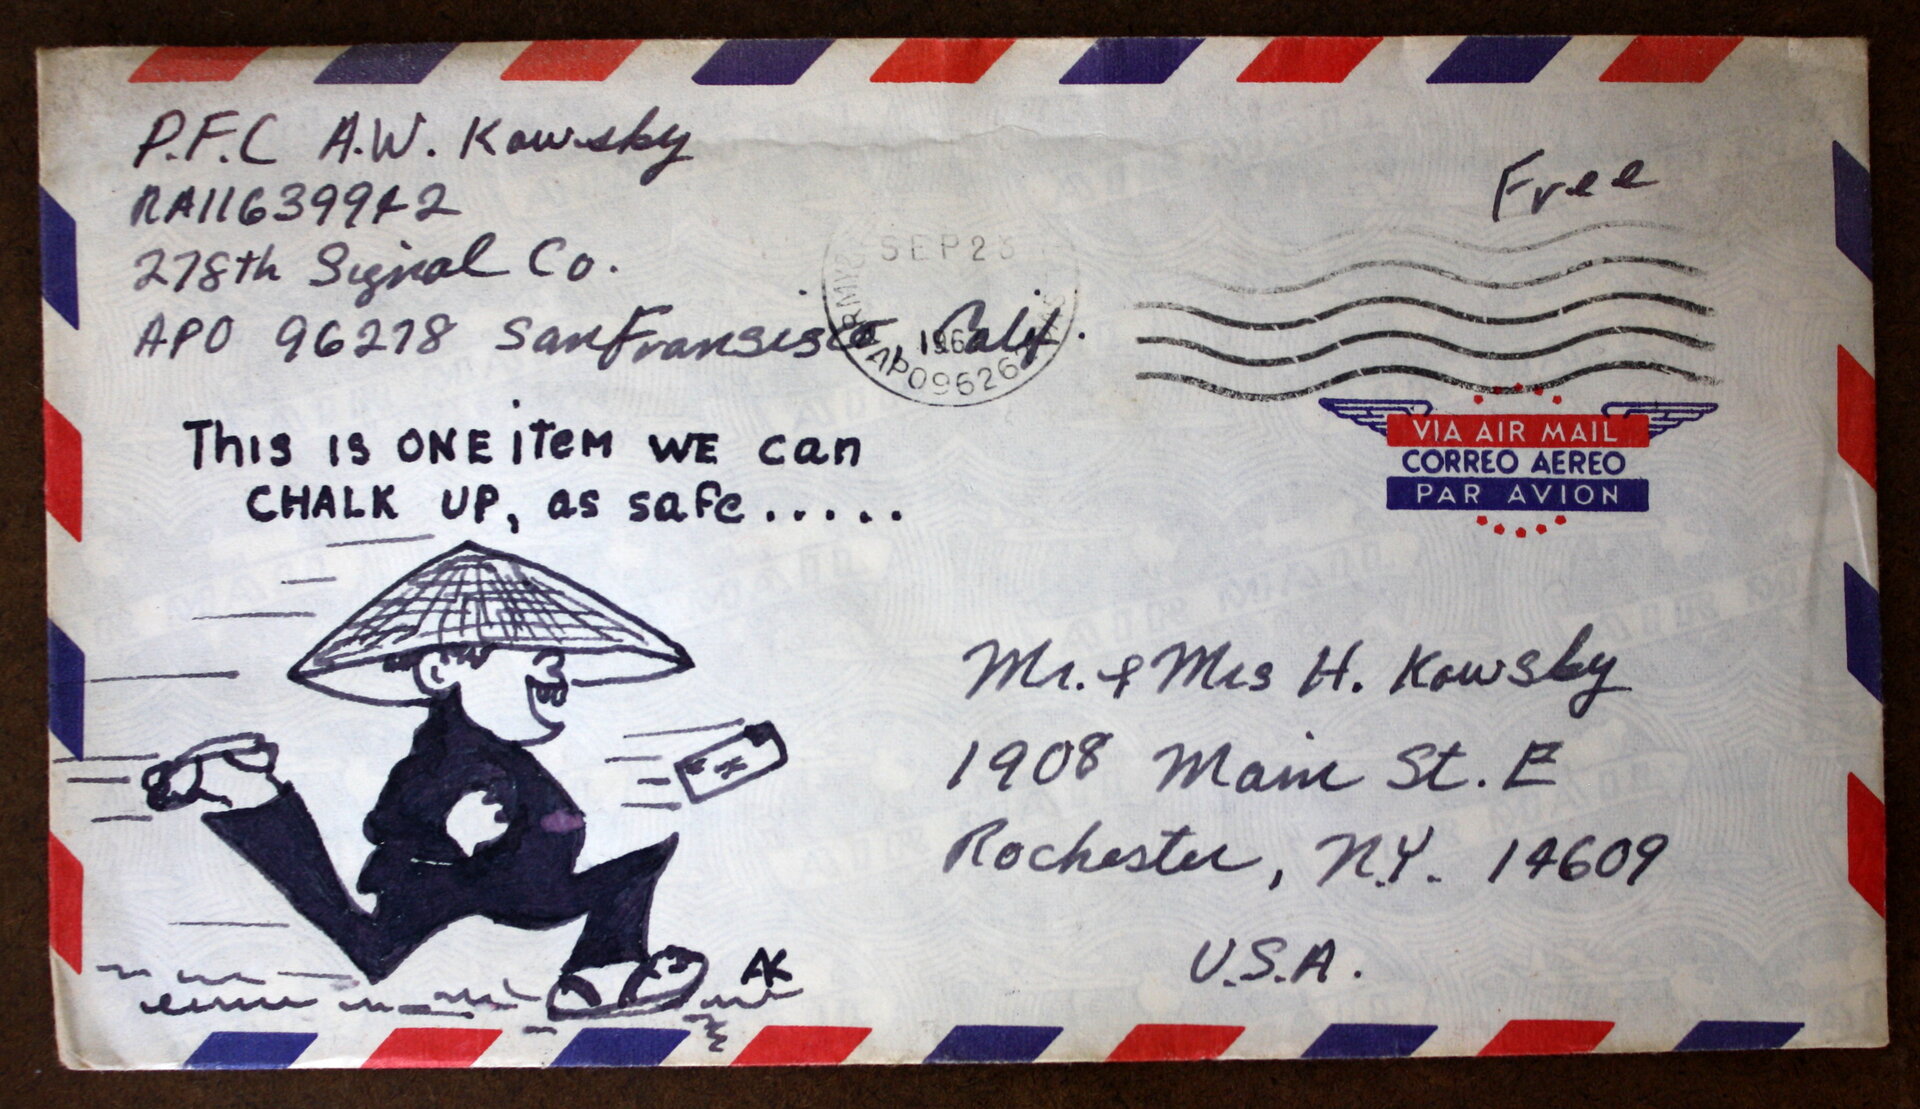 P.F.C A.W. Kowsky
RA11639942
278th Signal Co.
APO 96278 San Fransisco, Calif.
Free
SEP 23
196
APO 9626
This is ONE item WE can
CHALK UP, as safe.....
VIA AIR MAIL
CORREO AEREO
PAR AVION
Mr. & Mrs H. Kowsky
1908 Main St. E
Rochester, N.Y. 14609
U.S.A.
AK